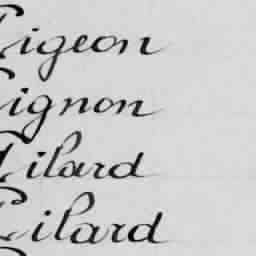 Pigeon
Pignon
Pilard
Pilard